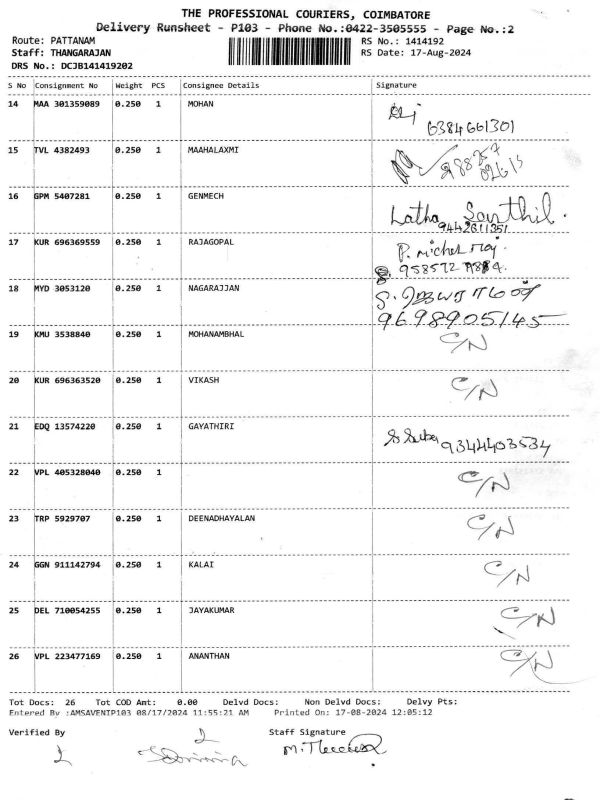 THE PROFESSIONAL COURIERS, COIMBATORE
Delivery Runsheet - P103 - Phone No.:0422-3505555 - Page No.:2
Route: PATTANAM RS No.: 1414192
Staff: THANGARAJAN RS Date: 17-Aug-2024
DRS No.: DCJB141419202
S No Consignment No Weight PCS Consignee Details Signature
14 MAA 301359089 0.250 1 MOHAN
6384661301
15 TVL 4382493 0.250 1 MAAHALAXMI
16 GPM 5407281 0.250 1 GENMECH
Latha Senthil.
9442611351
17 KUR 696369559 0.250 1 RAJAGOPAL
18 MYD 3053120 0.250 1 NAGARAJJAN
9698905145
19 KMU 3538840 0.250 1 MOHANAMBHAL C/N
20 KUR 696363520 0.250 1 VIKASH C/N
21 EDQ 13574220 0.250 1 GAYATHIRI 9344403534
22 VPL 405328040 0.250 1 C/N
23 TRP 5929707 0.250 1 DEENADHAYALAN C/N
24 GGN 911142794 0.250 1 KALAI C/N
25 DEL 710054255 0.250 1 JAYAKUMAR C/N
26 VPL 223477169 0.250 1 ANANTHAN C/N
Tot Docs: 26 Tot COD Amt: 0.00 Delvd Docs: Non Delvd Docs: Delvy Pts:
Entered By :AMSAVENIP103 08/17/2024 11:55:21 AM Printed On: 17-08-2024 12:05:12
Verified By Staff Signature